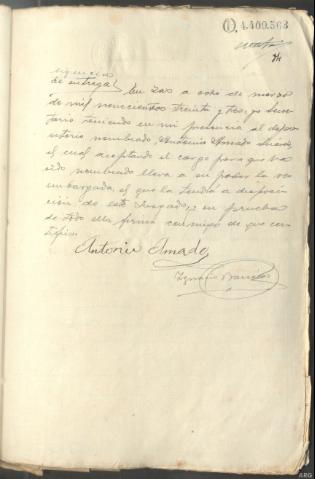 O.4.409.563
de entrega. En Zas a ocho de marzo
de mil novecientos treinta y tres, yo Secre-
tario teniendo en mi presencia al depo-
sitario nombrado, Antonio Amado
el cual aceptando el cargo para que ha
sido nombrado lleva a su poder la
embargada, el que la tendrá a disposi-
ción de este Juzgado, y en prueba
de todo ello firma conmigo de que cer-
tifico.
Antonio Amado
Ignacio
ARG